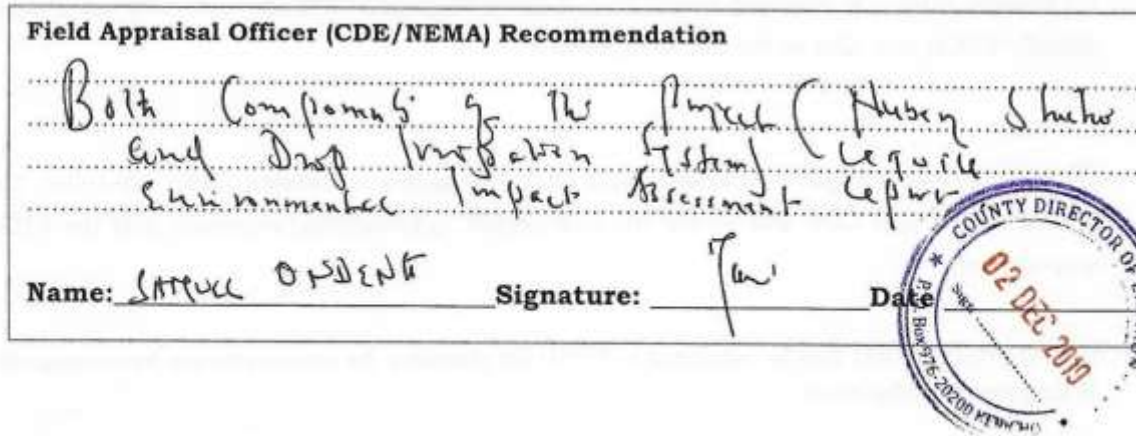 Field Appraisal Officer (CDE/NEMA) Recommendation
Both Components of the Project (
and Drip Irrigation System) require
Environmental Impact Assessment report
Name: SAMUEL Signature: Date
COUNTY DIRECTOR OF
02 DEC 2019
Sign
P.O. Box 976-20200 KERICHO